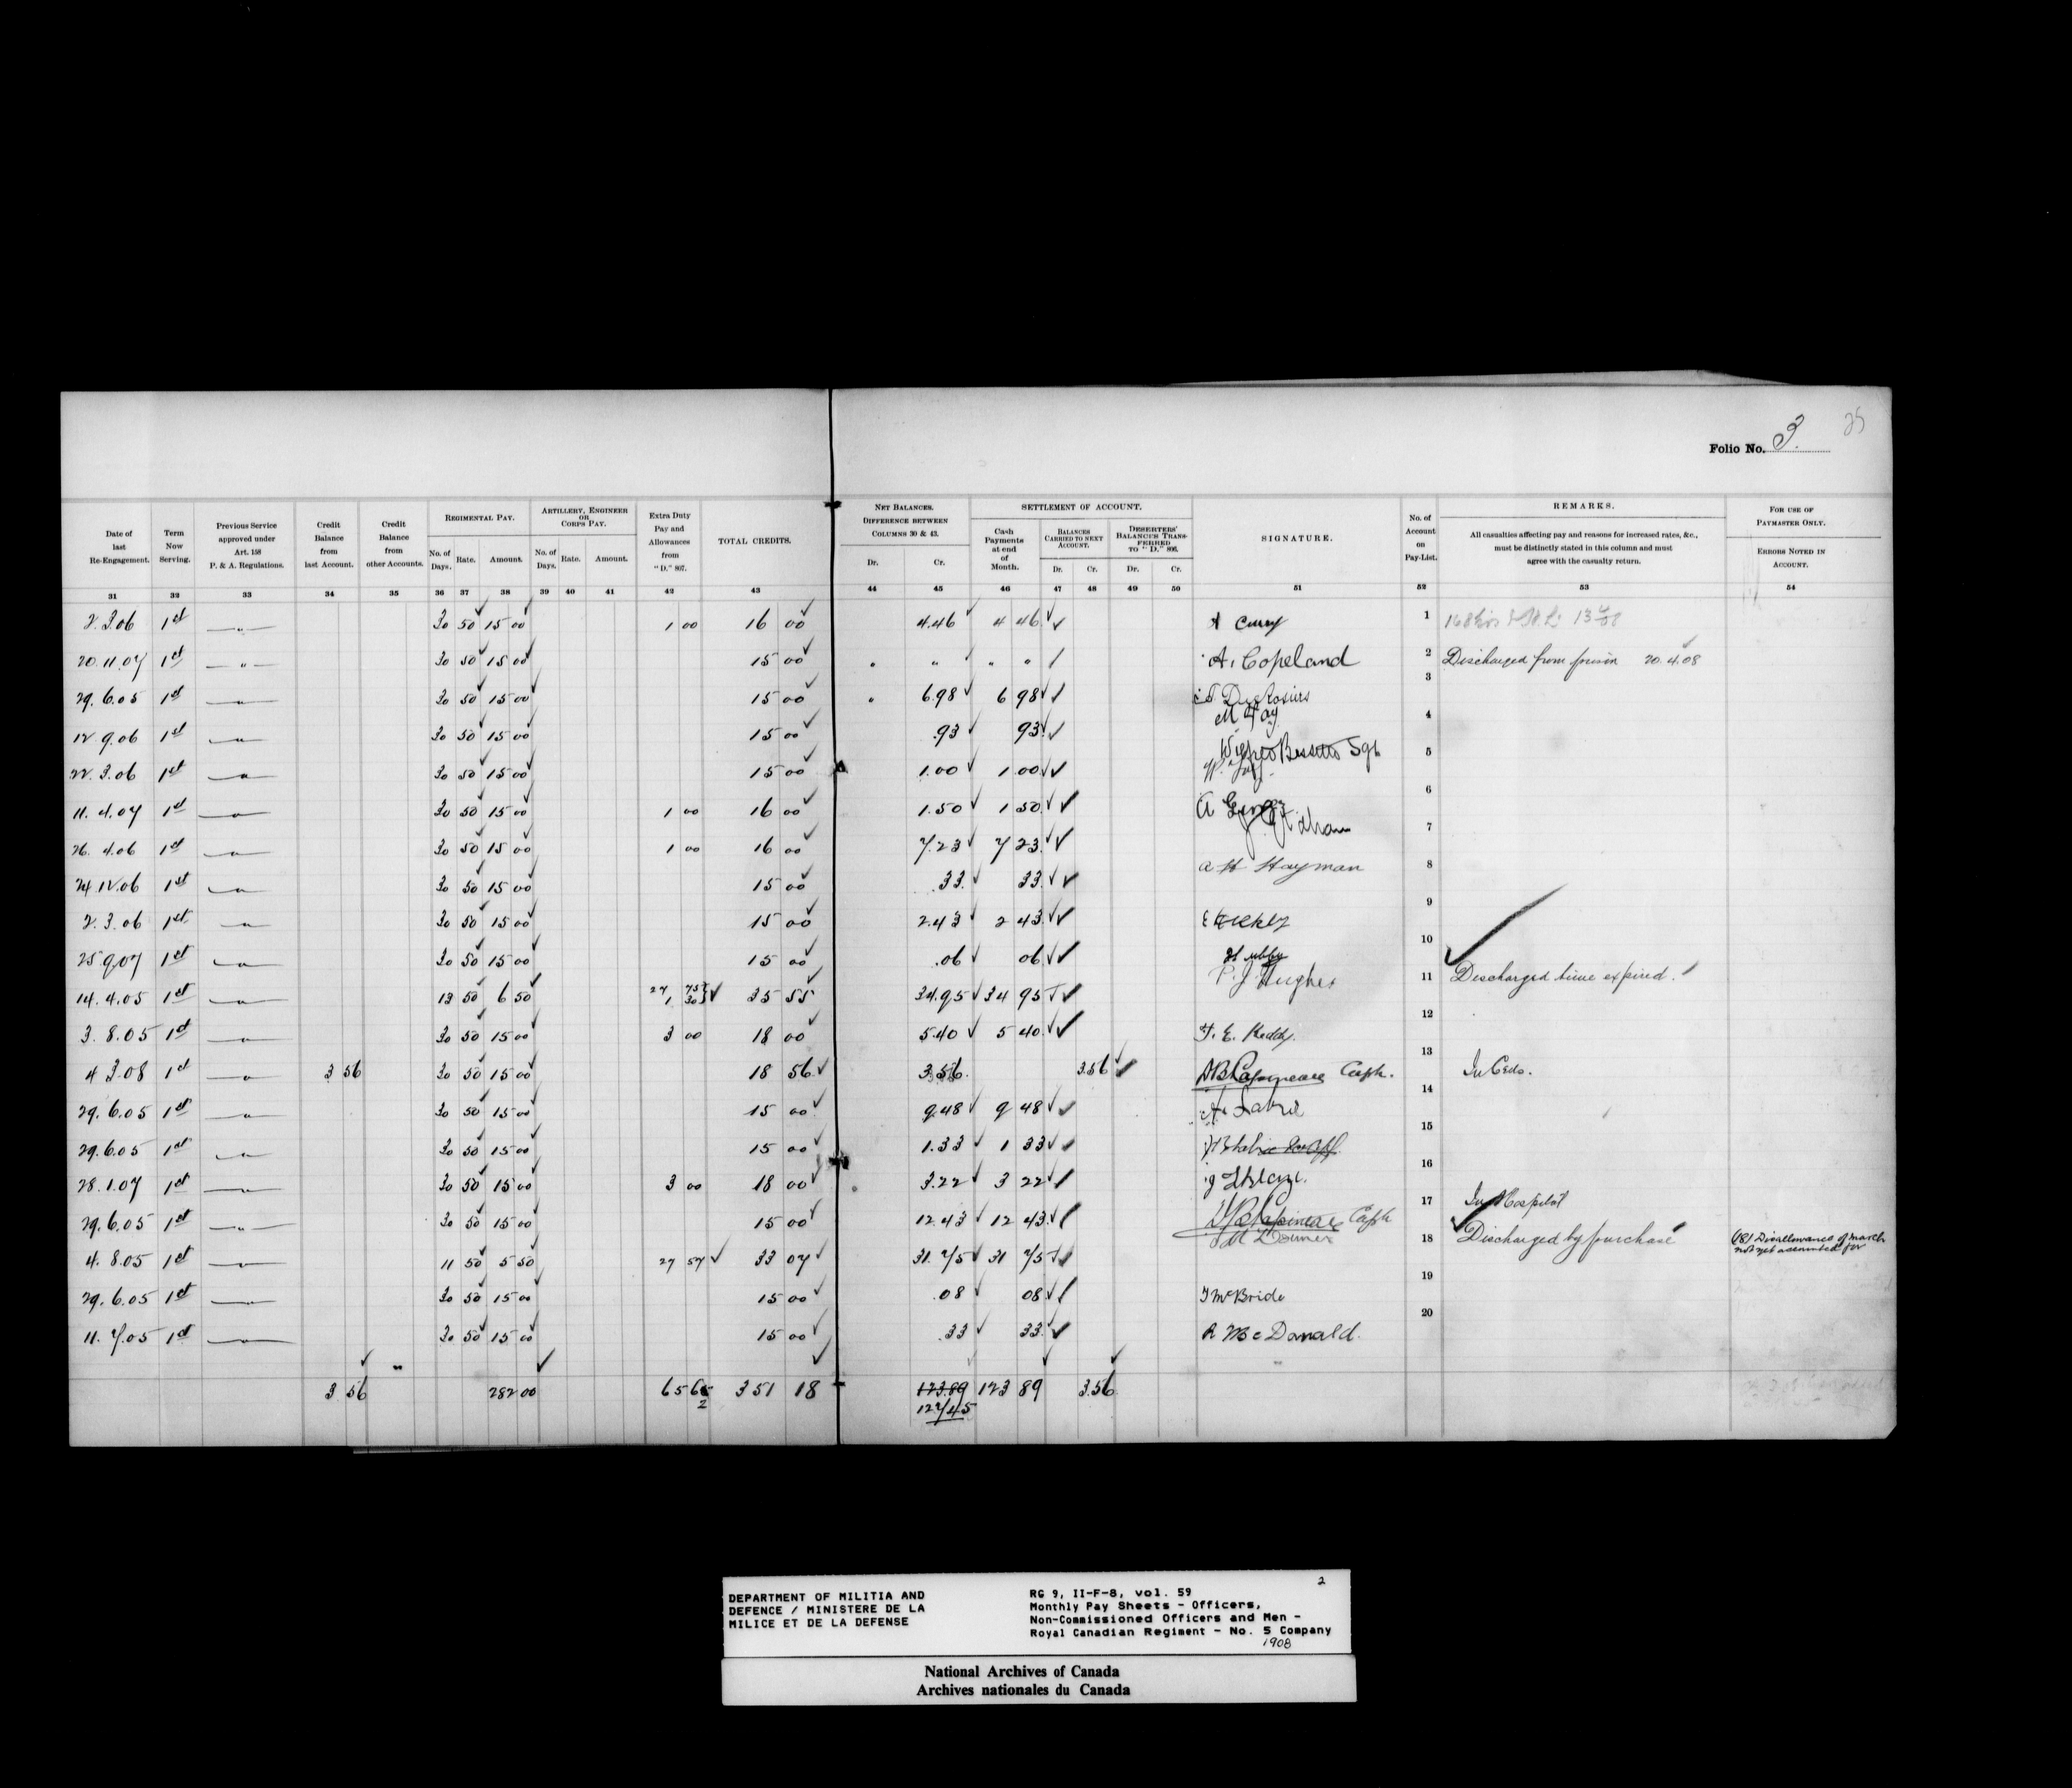 Folio No. 3. 25
Date of last Re-Engagement.
Term Now Serving.
Previous Service approved under Art. 158 P. & A. Regulations.
Credit Balance from last Account.
Credit Balance from other Accounts.
REGIMENTAL PAY.
No. of Days. Rate. Amount.
ARTILLERY, ENGINEER OR CORPS PAY.
No. of Days. Rate. Amount.
Extra Duty Pay and Allowances from "D." 807.
TOTAL CREDITS.
NET BALANCES. DIFFERENCE BETWEEN COLUMNS 30 & 43.
Dr. Cr.
SETTLEMENT OF ACCOUNT.
Cash Payments at end of Month.
BALANCES CARRIED TO NEXT ACCOUNT.
Dr. Cr.
DESERTERS' BALANCES TRANSFERRED TO "D." 806.
Dr. Cr.
SIGNATURE.
No. of Account on Pay-List.
REMARKS.
All casualties affecting pay and reasons for increased rates, &c., must be distinctly stated in this column and must agree with the casualty return.
FOR USE OF PAYMASTER ONLY.
ERRORS NOTED IN ACCOUNT.
31 32 33 34 35 36 37 38 39 40 41 42 43 44 45 46 47 48 49 50 51 52 53 54
2.3.06 1st — " — 30 50 15 00 1 00 16 00 4.46 4 46 A Curry 1
20.11.07 1st — " — 30 50 15 00 15 00 " " " A. Copeland 2 Discharged from prison 20.4.08
29.6.05 1st — " — 30 50 15 00 15 00 6.98 6 98 DesRosiers 3
12 9.06 1st — " — 30 50 15 00 15 00 .93 93 M Fay 4
22.3.06 1st — " — 30 50 15 00 15 00 1.00 1 00 Bessette Sgt 5
11.4.07 1st — " — 30 50 15 00 1 00 16 00 1.50 1 50 A 6
26.4.06 1st — " — 30 50 15 00 1 00 16 00 7.23 7 23 7
24.12.06 1st — " — 30 50 15 00 15 00 .33 33 A H Hayman 8
2.3.06 1st — " — 30 50 15 00 15 00 2.43 2 43 9
25 9.07 1st — " — 30 50 15 00 15 00 .06 06 10
14.4.05 1st — " — 13 50 6 50 27 75 1 30 35 55 34.95 34 95 P. J Hughes 11 Discharged time expired.
3.8.05 1st — " — 30 50 15 00 3 00 18 00 5.40 5 40 F. E. Reddy. 12
4 3.08 1st — " — 3 56 30 50 15 00 18 56 3.56 3.56 Capt. 13 In Cells.
29.6.05 1st — " — 30 50 15 00 15 00 9.48 9 48 14
29.6.05 1st — " — 30 50 15 00 15 00 1.33 1 33 15
28.1.07 1st — " — 30 50 15 00 3 00 18 00 3.22 3 22 16
29.6.05 1st — " — 30 50 15 00 15 00 12.43 12 43 Capt 17 In Hospital
4.8.05 1st — " — 11 50 5 50 27 57 33 07 31.75 31 75 18 Discharged by purchase (18) Disallowances of March not yet accounted for
29.6.05 1st — " — 30 50 15 00 15 00 .08 08 J McBride 19
11.7.05 1st — " — 30 50 15 00 15 00 .33 33 A McDonald. 20
3 56 " 282 00 65 62 351 18 123.89 123 89 3.56
127/45
DEPARTMENT OF MILITIA AND
DEFENCE / MINISTERE DE LA
MILICE ET DE LA DEFENSE
2
RG 9, II-F-8, vol. 59
Monthly Pay Sheets - Officers,
Non-Commissioned Officers and Men -
Royal Canadian Regiment - No. 5 Company
1908
National Archives of Canada
Archives nationales du Canada